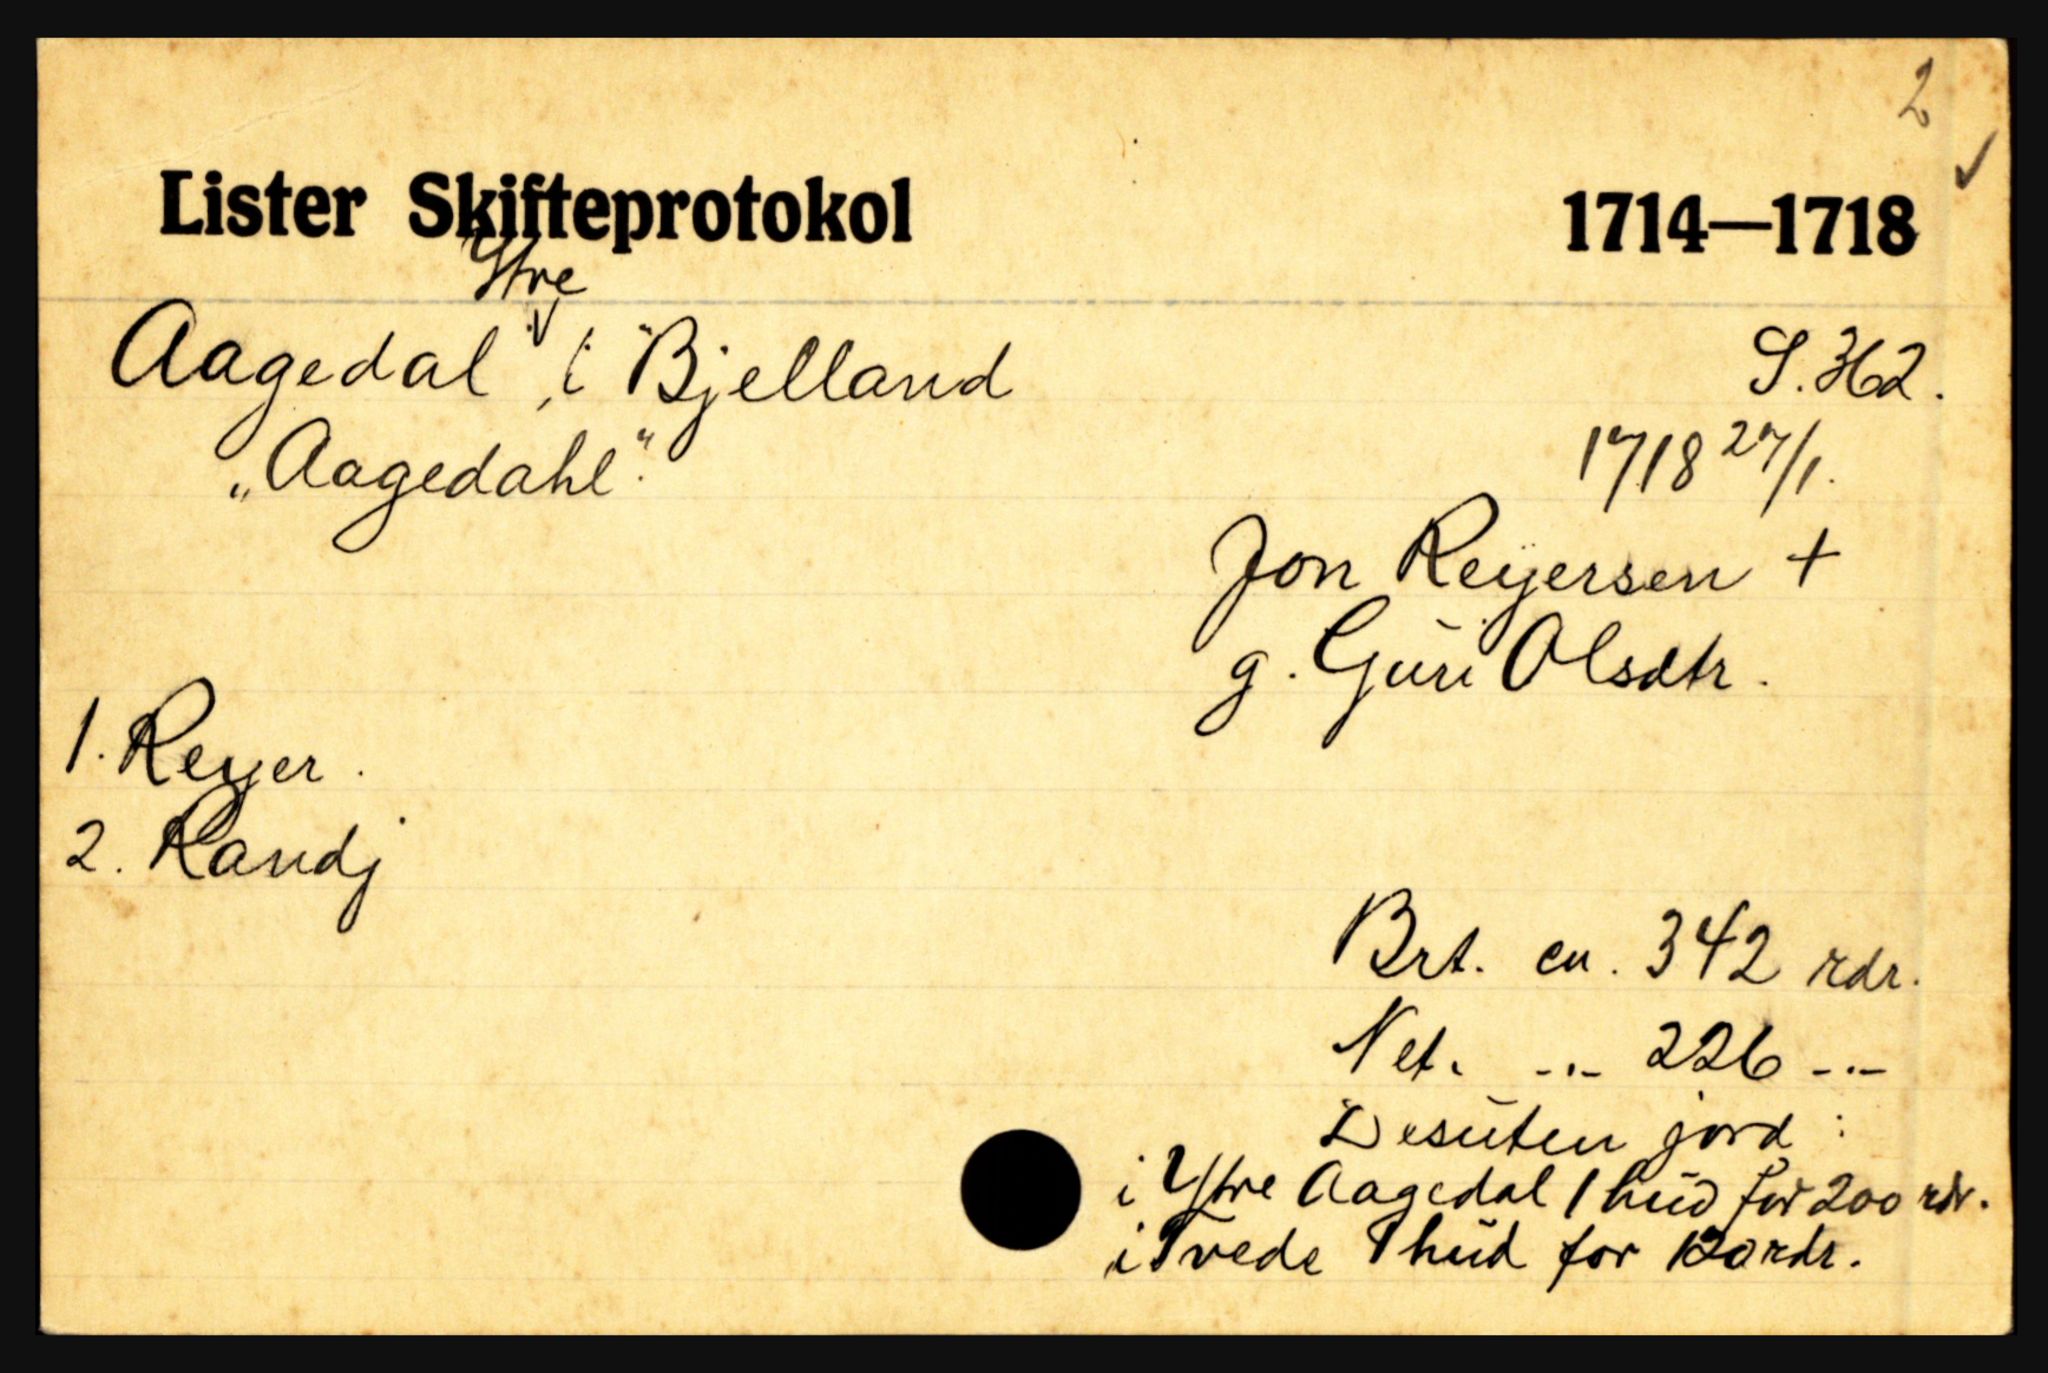 2
Lister Skifteprotokol 1714—1718 ✓
Ytre
Aagedal, i Bjelland S. 362.
„Aagedahl". 1718 27/1.
Jon Reÿersen +
g. Guri Olsdtr.
1. Reyer.
2. Randj
Brt. ca. 342 rdr.
Net. -"- 226 -"-
Desuten jord:
i Ytre Aagedal 1 hud for 200 rdr.
i Tvede 1 hud for 120 rdr.